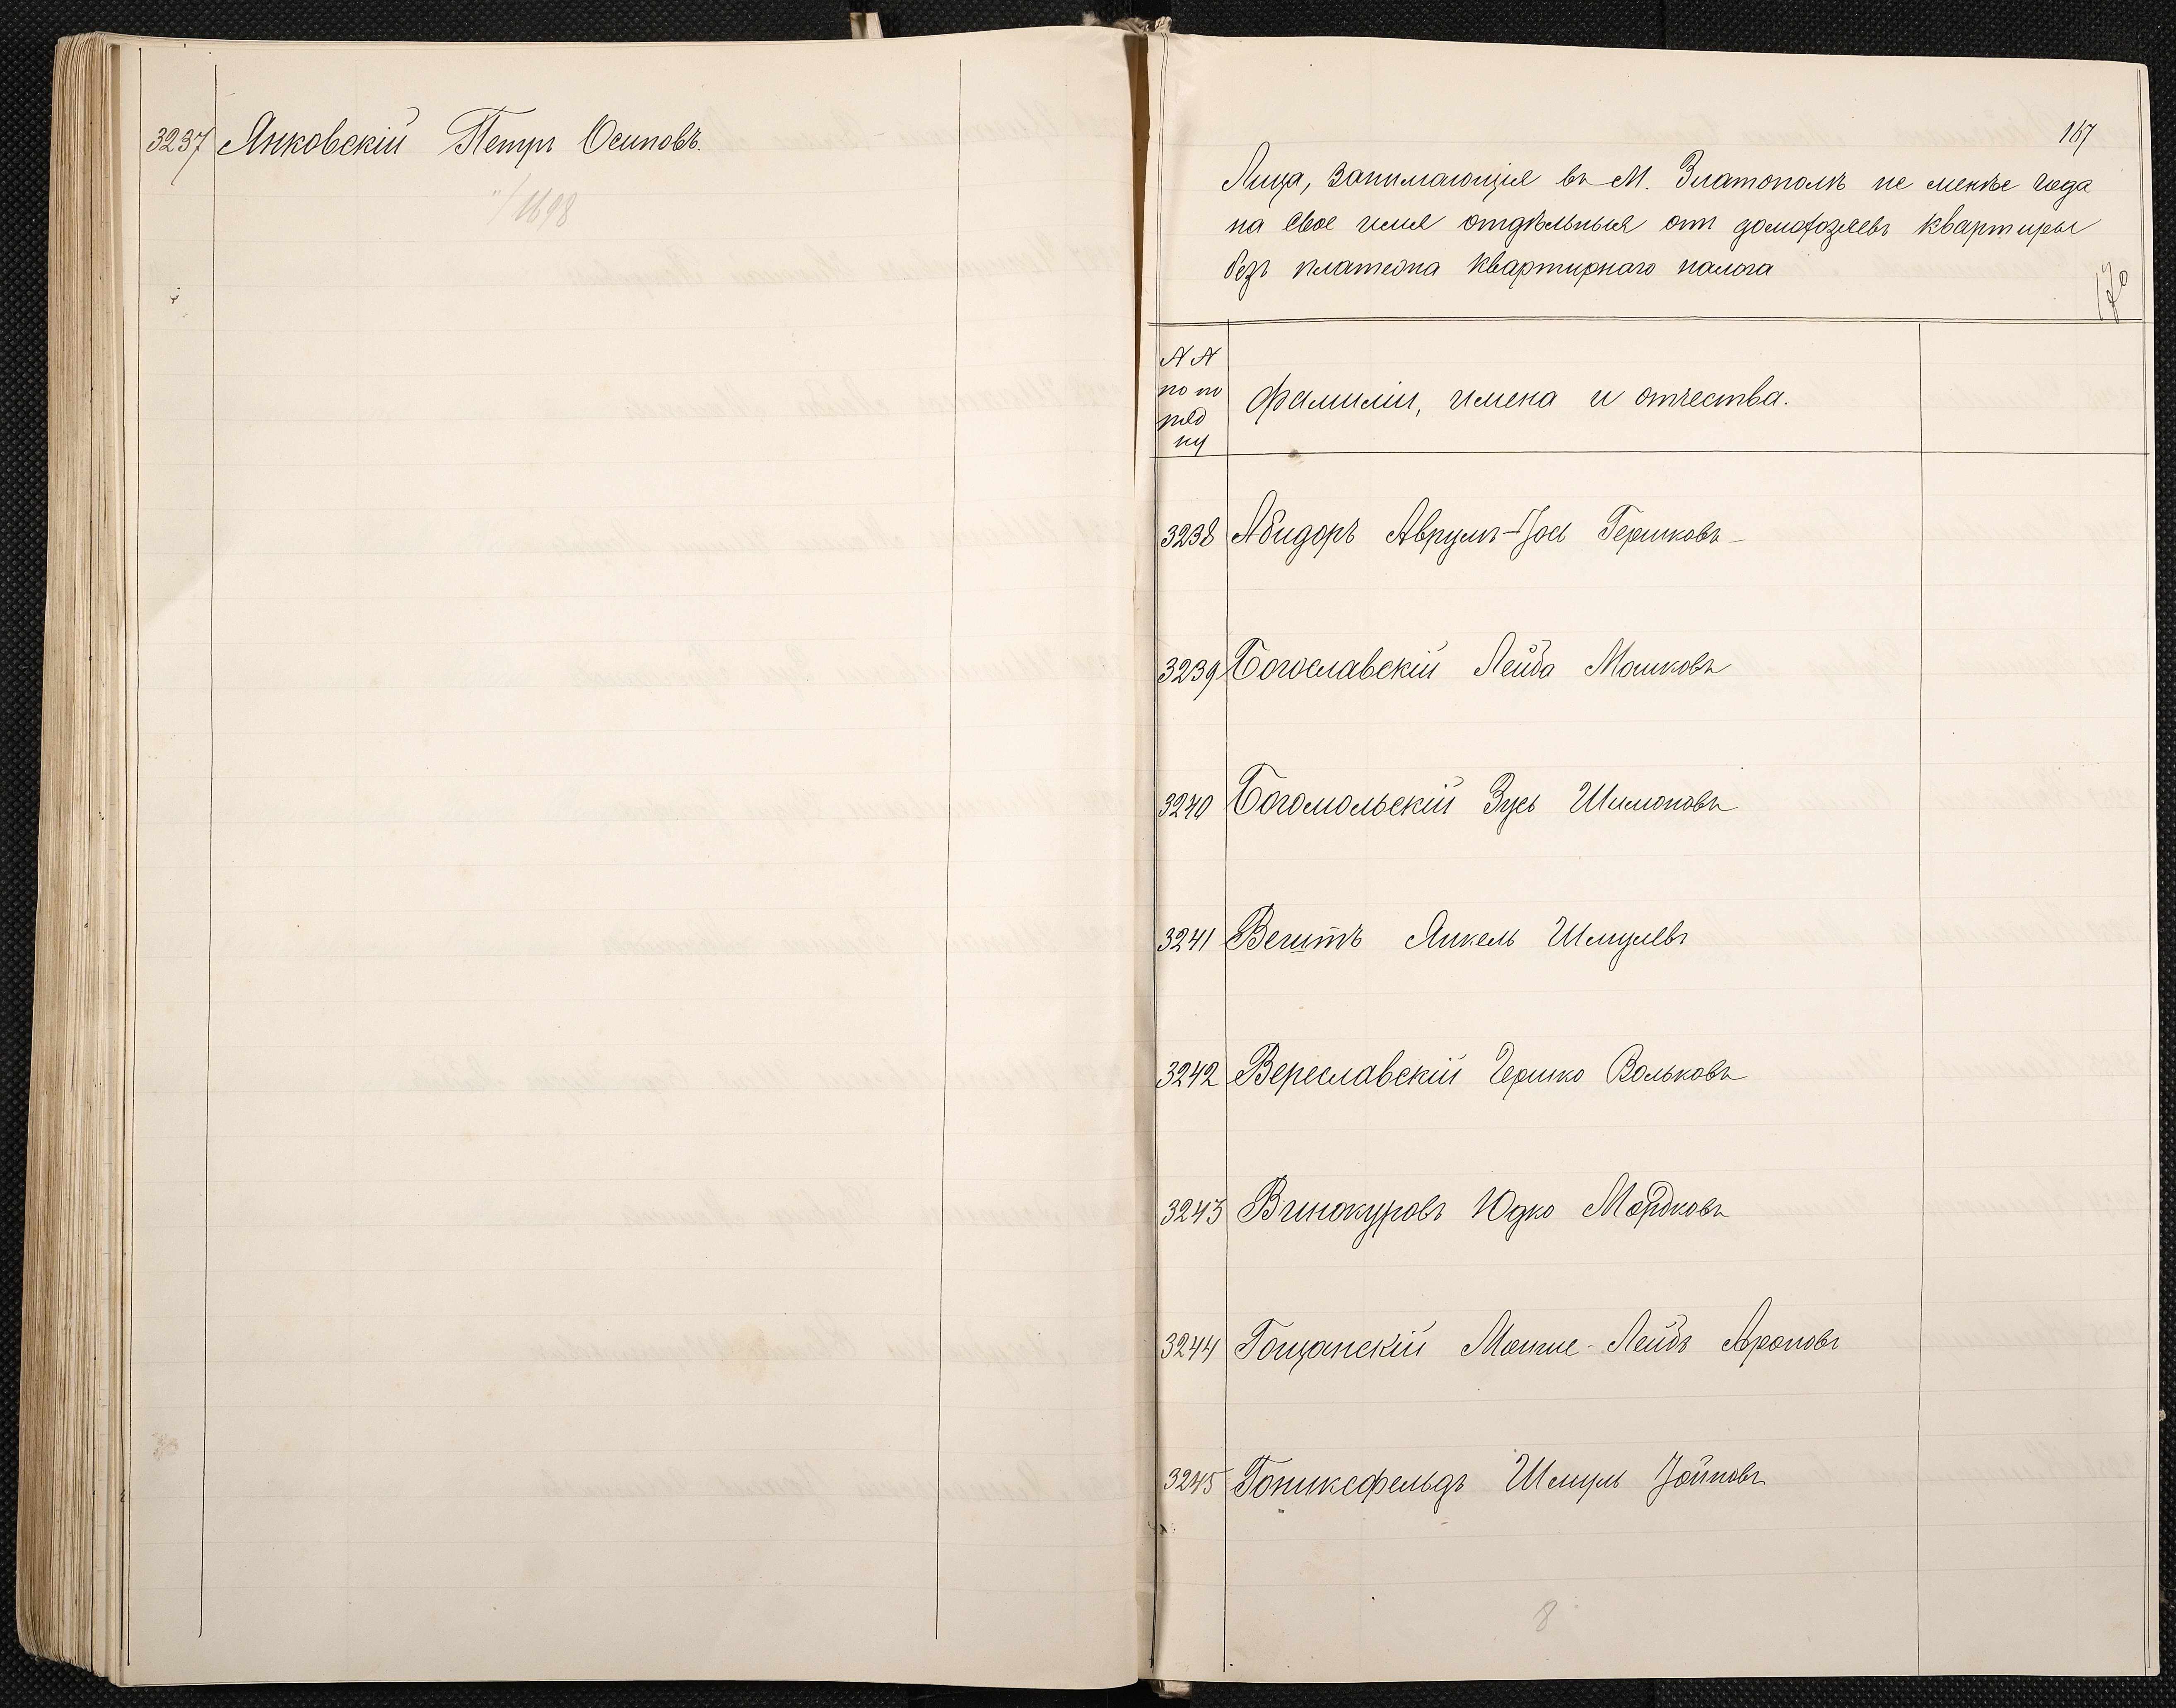 3237 Янковскій Петръ Осиповъ.
1698
167
Лица, занимающія въ М. Златополѣ не менѣе года
на свое имя отдѣльныя отъ домохозяевъ квартиры
безъ платежа квартирнаго налога
170
NN
по по
ряд
ку
Фамиліи, имена и отчества.
3238 Абидоръ Аврумъ-Іось Гершковъ
3239 Богославскій Лейба Мошковъ
3240 Богомольскій Зусь Шимоновъ
3241 Янкель Шмулевъ
3242 Вереславскій Гершко Вольковъ
3243 Винокуровъ Юдко Мордковъ
3244 Гощанскій Лейбъ Ароновъ
3245 Гониксфельдъ Шмуль Іойновъ
8